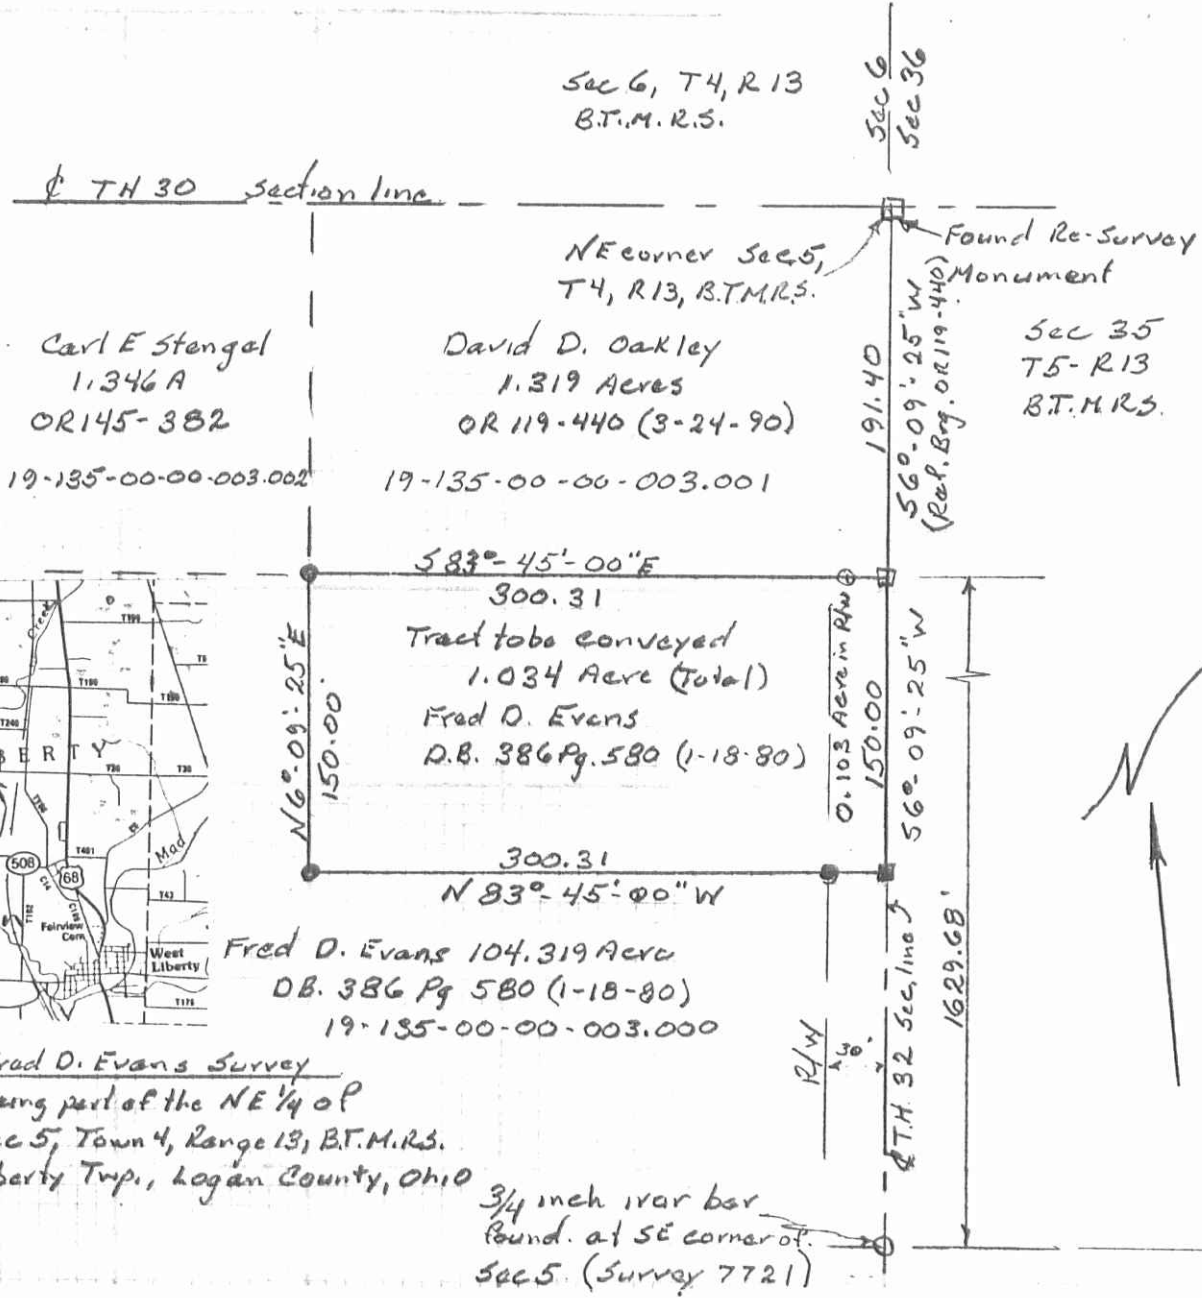 Sec 6, T4, R 13
B.T.M. R.S.
Sec 6
Sec 36
₵ TH 30 Section line
NE corner Sec 5,
T4, R13, B.T.M.R.S.
Found Re-Survey
Monument
Carl E Stengel
1.346 A
OR145-382
19-135-00-00-003.002
David D. Oakley
1.319 Acres
OR 119-440 (3-24-90)
19-135-00-00-003.001
191.40
S6°-09'-25"W
(Ref. Brg. OR119-440)
Sec 35
T5-R13
B.T.M.R.S.
S 83°-45'-00"E
300.31
Tract to be conveyed
1.034 Acre (Total)
Fred D. Evans
D.B. 386 Pg. 580 (1-18-80)
N6°-09'-25"E
150.00'
0.103 Acre in R/W
150.00
S6°-09'-25"W
300.31
N 83°-45'-00" W
N
Fred D. Evans 104.319 Acre
DB. 386 Pg 580 (1-18-80)
19-135-00-00-003.000
R/W
30'
₵ T.H. 32 Sec, line
1629.68'
Creek
T199
T190
T240
BERTY
T30
T30
T401
Mad
508
68
T43
T182
Fairview
Cem
West
Liberty
T175
red D. Evans Survey
eing part of the NE 1/4 of
c 5, Town 4, Range 13, B.T.M.R.S.
berty Twp., Logan County, Ohio
3/4 inch iron bar
found. at SE corner of
Sec 5. (Survey 7721)